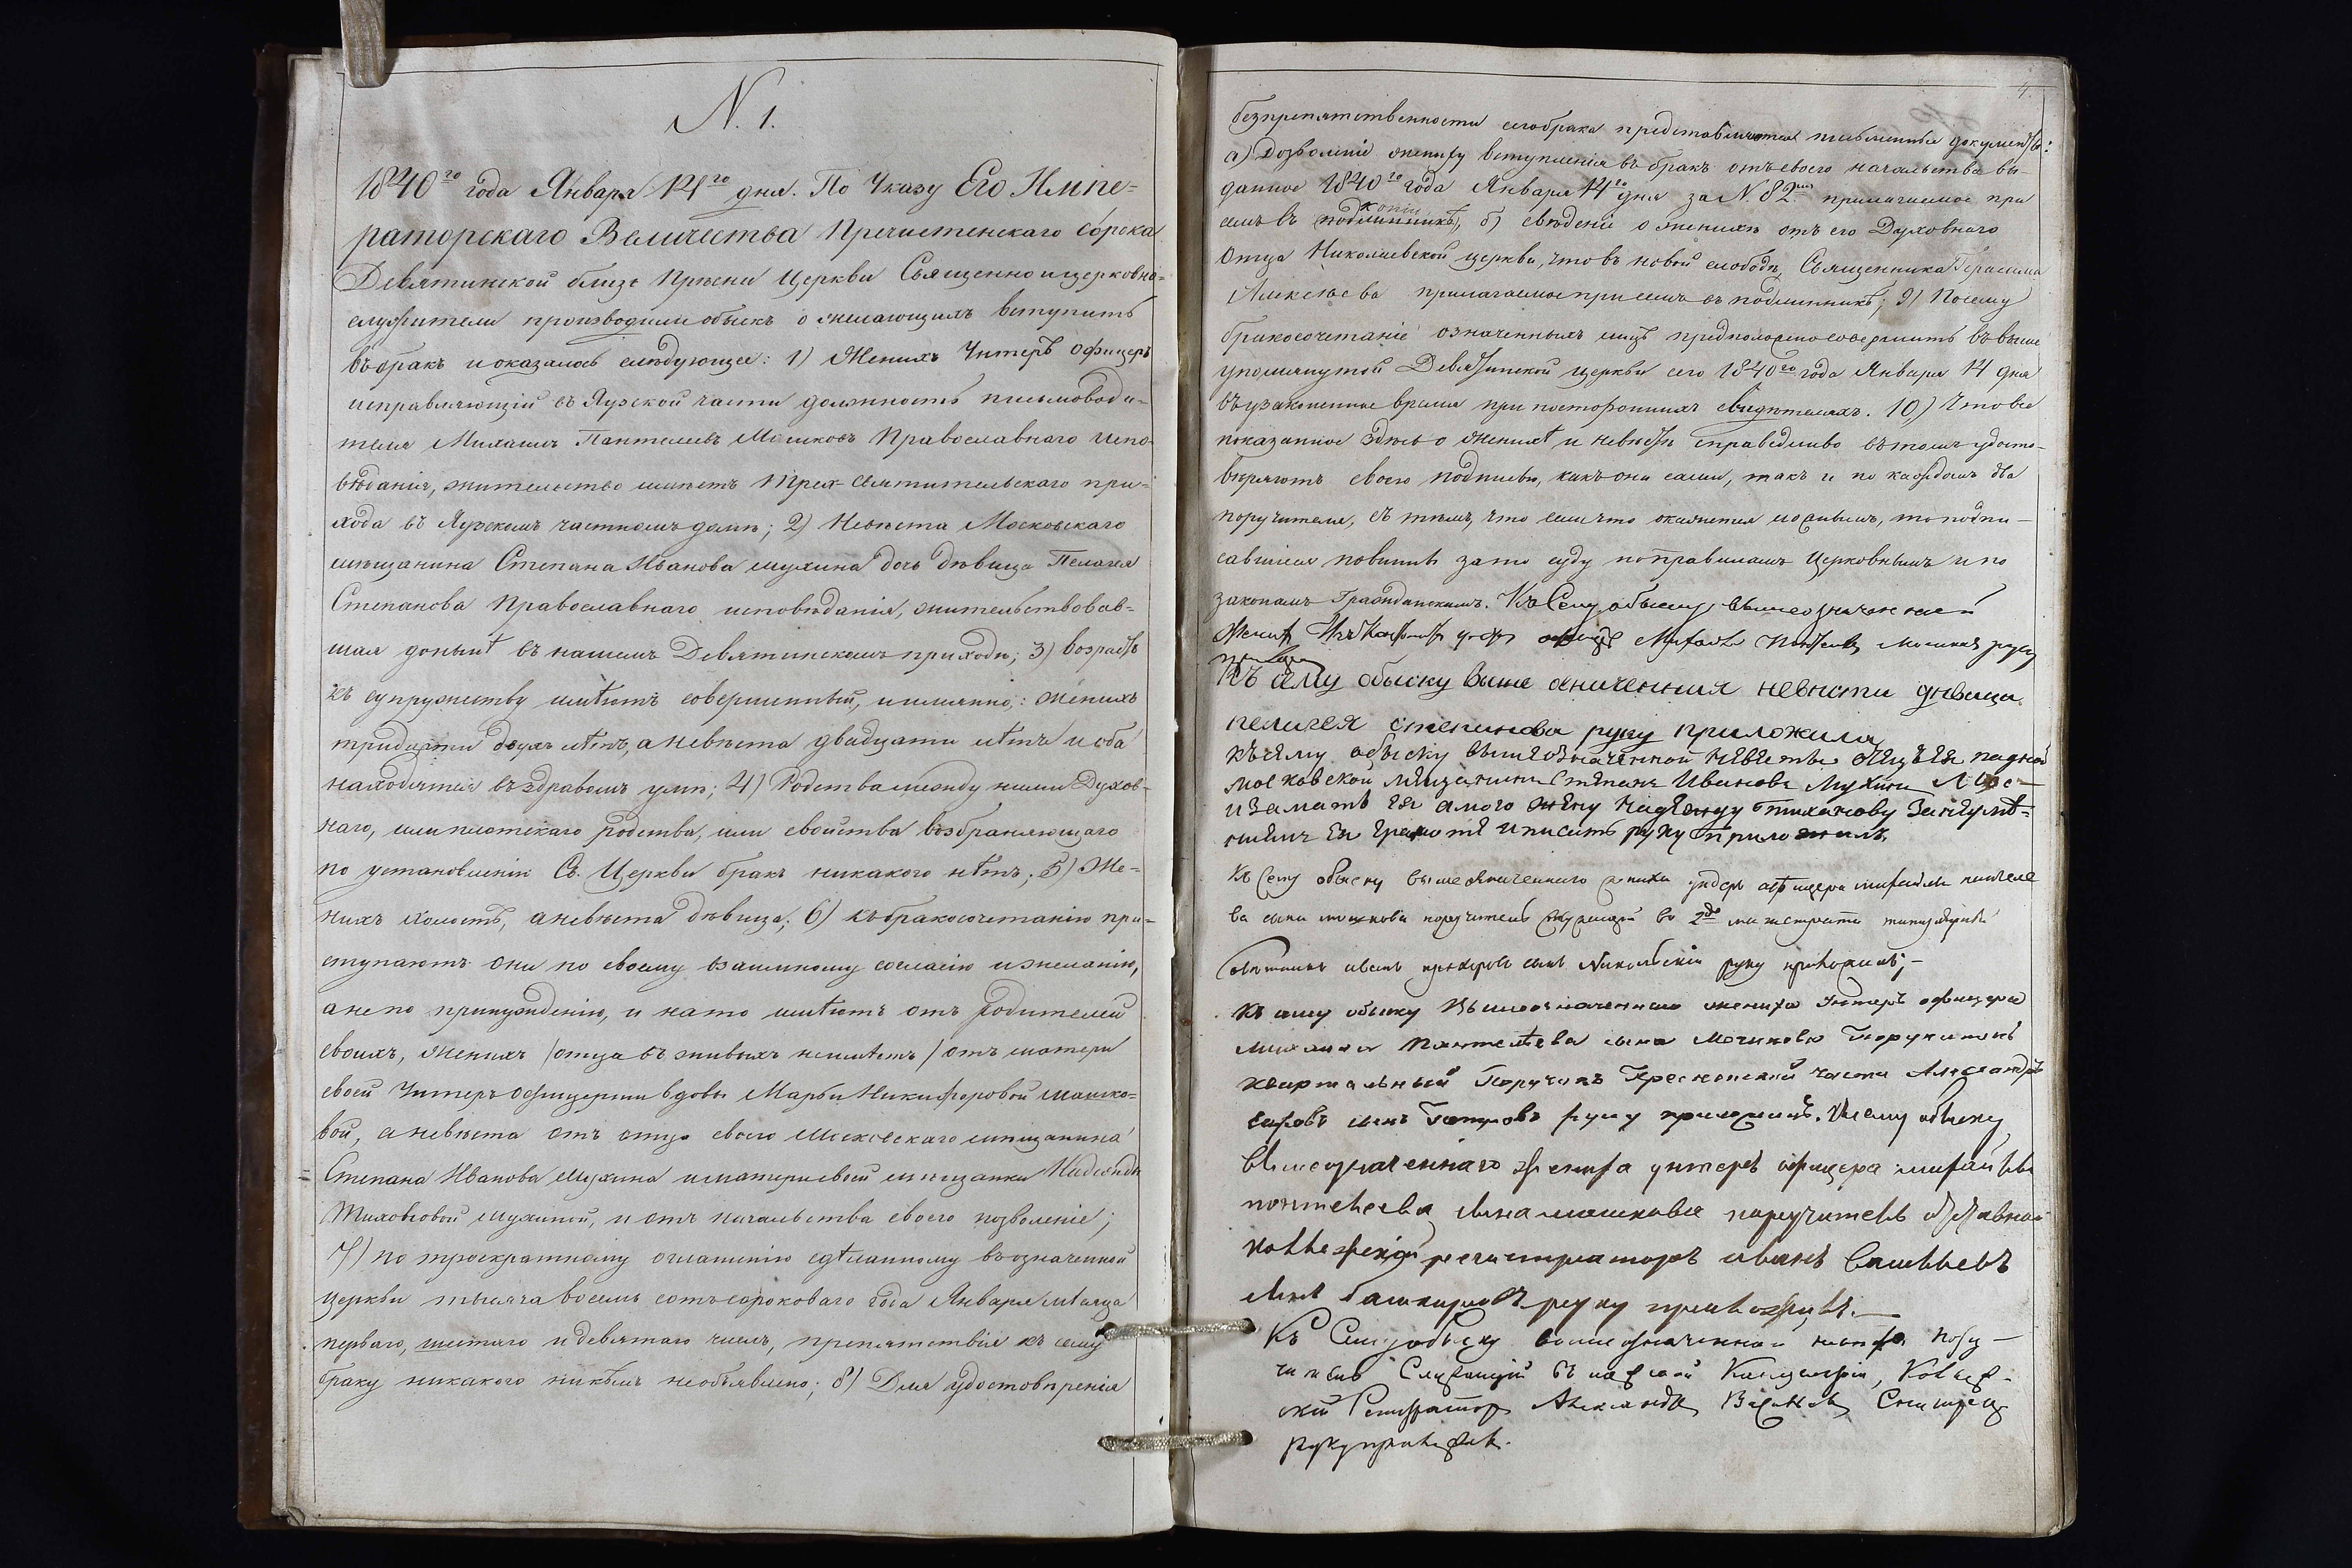 N. 1.
1840го года Января 14го дня. По Указу Его Импе-
раторскаго Величества Пречистенскаго сорока
Девятинской близъ Прѣсни Церкви Священно и церковно-
служители производили обыскъ о желающихъ вступить
въ бракъ и оказалось слѣдующее: 1) Женихъ Унтеръ Офицеръ
исправляющій въ Яузской части должность письмоводи-
теля Михаилъ Пантелеевъ Мошковъ Православнаго испо-
вѣданія, жительство имѣетъ Трех-Святительскаго при-
хода въ Яузскомъ частномъ домѣ; 2) Невѣста Московскаго
мѣщанина Степана Иванова Мухина дочь дѣвица Пелагея
Степанова Православнаго исповѣданія, жительствовав-
шая донынѣ въ нашемъ Девятинскомъ приходѣ; 3) возрастъ
къ супружеству имѣютъ совершенный, и именно: женихъ
тридцати двухъ лѣтъ, а невѣста двадцати лѣтъ и оба
находятся въ здравомъ умѣ; 4) Родства между ними Духов-
наго, или плотскаго родства, или свойства возбраняющаго
по установленію Св. Церкви бракъ никакого нѣтъ; 5) Же-
нихъ холостъ, а невѣста дѣвица; 6) къ бракосочетанію при-
ступаютъ они по своему взаимному согласію и желанію,
а не по принужденію, и на то имѣютъ отъ родителей
своихъ, женихъ /отца въ живыхъ неимѣетъ/ отъ матери
своей Унтеръ Офицерши вдовы Марѳы Никифоровой Мошко-
вой, а невѣста отъ отца своего Московскаго мѣщанина
Степана Иванова Мухина и матери своей мѣщанки Надежды
Тихоновой Мухиной, и отъ начальства своего позволеніе;
7) по троекратному оглашенію сдѣланному въ означенной
церкви тысяча восемь сотъ сороковаго года Января мѣсяца
перваго, шестаго и девятаго числъ, препятствія къ сему
браку никакого никѣмъ необъявлено; 8) Для удостовѣренія
4.
безпрепятственности сего брака представляются письменные документы:
а) Дозволеніе жениху вступленія въ бракъ отъ своего начальства вы-
данное 1840го года Января 14го дня за N. 82мъ прилагаемое при
семъ въ копіи подлинникѣ, б) свѣденіе о женихѣ отъ его Духовнаго
Отца Николаевской церкви, что въ новой слободѣ, Священника Герасима
Алексѣева прилагаемое при семъ въ подлинникѣ; 9) Посему
бракосочетаніе означенныхъ лицъ предположено совершить въ выше
упомянутой Девятинской церкви сего 1840го года Января 14 дня
въ узаконенное время при постороннихъ свидѣтеляхъ. 10) Что все
показанное здѣсь о женихѣ и невѣстѣ справедливо въ томъ удосто-
вѣряютъ своею подписью, какъ они сами, такъ и по каждомъ два
поручителя, съ тѣмъ, что если что окажется ложнымъ, то подпи-
савшіеся повинны за то суду по правиламъ Церковнымъ и по
законамъ Гражданскимъ. Къ Сему обыску вышеозначенной
Жених унтер офицеръ Михайла Пантелеев Мошковъ руку
приложил
Къ сему обыску Выше означенная невѣста дѣвица
пелагея степанова руку приложила
къ сему обыску вышеозначенной невесты отецъ ея родной
московской мещанинъ Степанъ Ивановъ Мухинъ
и за мать ея а мою жену надежду тихонову за неуме-
ниемъ ея грамоте и писать руку приложилъ.
Къ сему обыску вышеозначенного жениха ундеръ афицера михайлы пантеле
ва сына мошкова поручитель служащій во 2мъ магистрата титулярный
Советникъ сынъ Никольскій руку приложилъ;
Къ сему обыску Вышеозначеннаго жениха Унтеръ офицера
Михаила Пантелѣева сына Мошкова Поручитель
квартальный Поручикъ Пресненской части Александръ
сынъ Петровъ руку приложилъ. К сему обыску
Вышеозначеннаго жениха унтеръ офицера михайлы
понтелеева сына мошкова поручитель отставной
коллежской регистраторъ иванъ Васильевъ
сынъ башкировъ руку приложилъ.
Къ Сему обыску вышеозначенной поручи-
тель Служащій въ Канцеляріи, Коллеж-
скій Регистраторъ Александръ
руку приложилъ.